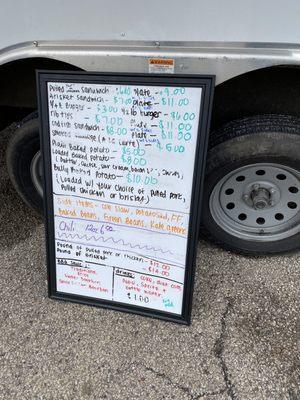 WARNING
Pulled sandwich - $6.00 Plate - $9.00
Brisket Sandwich - $7.00 Plate - $11.00
1/4 # Burger - $3.00 1/2 lb burger $6.00
Rib tips - $7.00 Plate - $11.00
Catfish Sandwich - $8.00 Plate - $11.50
Smoked Sausage (1/3 lb) - $6.00
Plain Baked potato - $5.00
Loaded Baked potato - $8.00
(butter, cheese, sour cream, bacon bits, chives)
Bully Baked potato - $10.00
(Loaded w/ your choice of pulled pork,
Pulled chicken or brisket)
Side Items - Cole slaw, potato salad, FF
baked Beans, Green Beans, Kale Greens
Chili 12oz 6.00
Pound of pulled pork or chicken - $12.00
Pound of Brisket - $14.00
Drinks
Coke, diet coke,
Sprite &
bottle water
$1.00